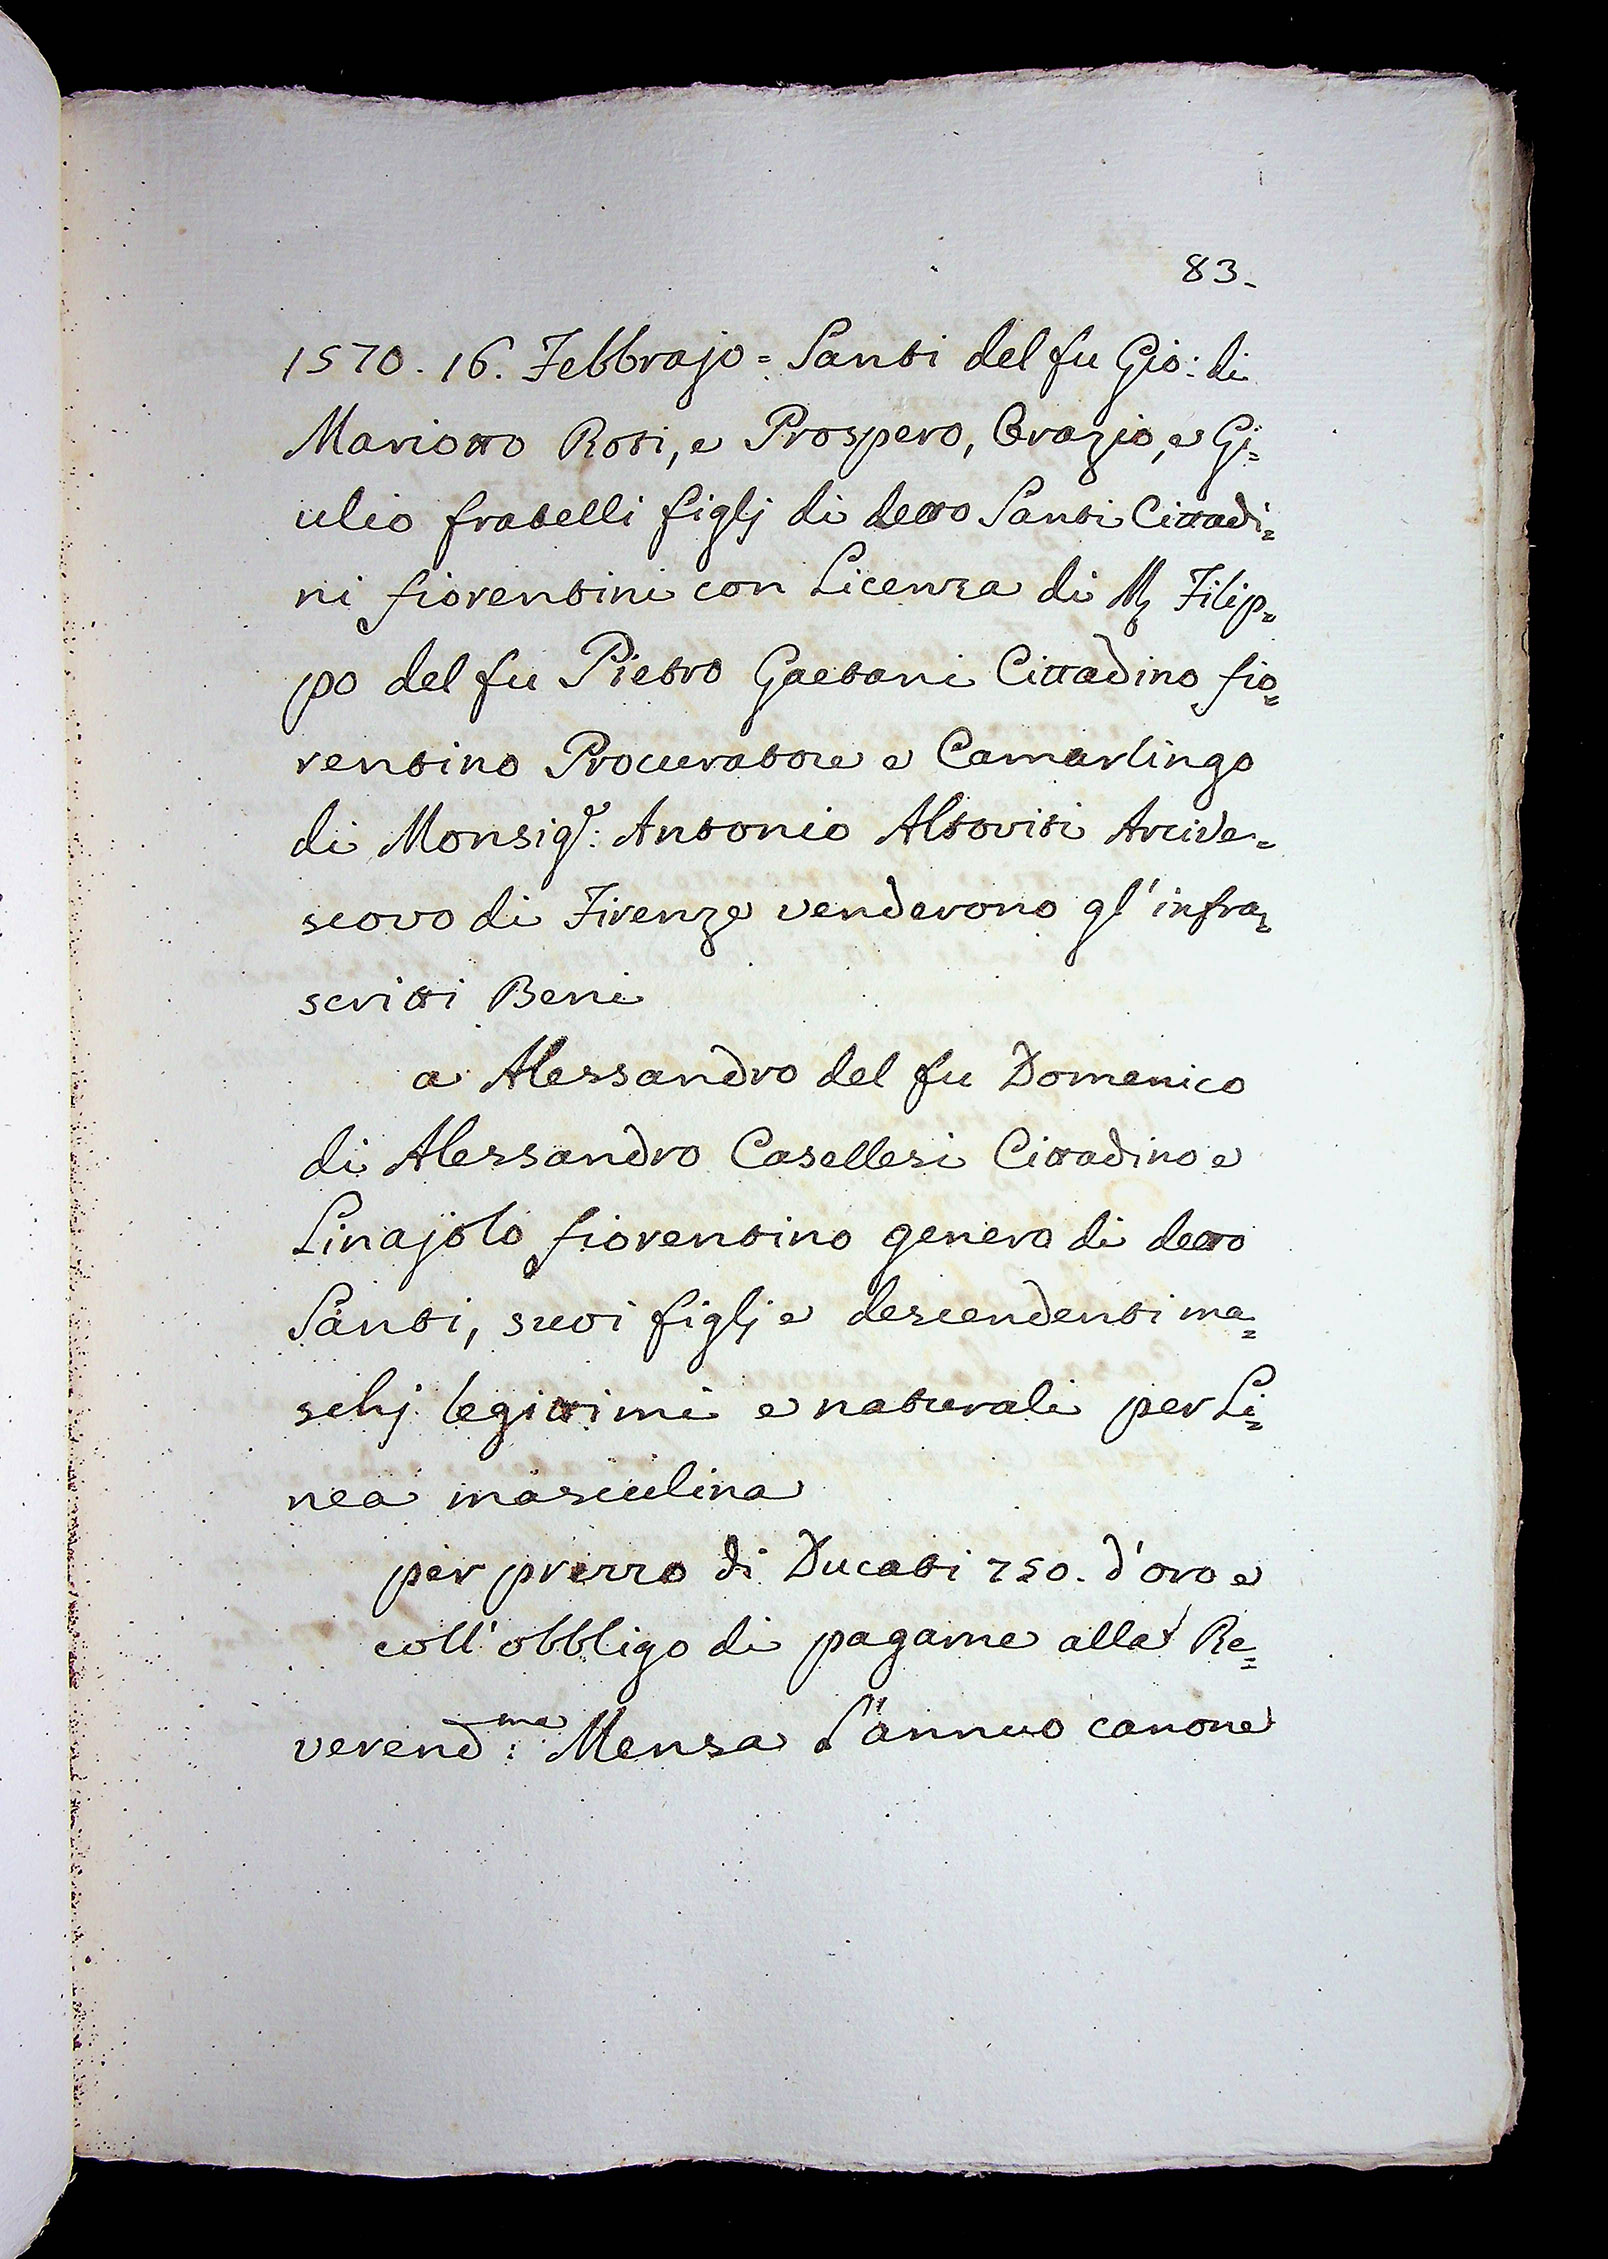 83.
1570. 16. Febbrajo = Santi del fu Gio: di
Mariotto Roti, e Prospero, Orazio, e Gi=
ulio fratelli figlj di detto Santi Cittadi=
ni fiorentini con Licenza di M. Filip=
po del fu Pietro Gaetani Cittadino fio=
rentino Procuratore e Camarlingo
di Monsigr: Antonio Altoviti Arcive=
scovo di Firenze venderono gl'infra=
scritti Beni
a Alessandro del fu Domenico
di Alessandro Casellesi Cittadino e
Linajolo fiorentino genero di detto
Santi, suoi figlj e descendenti ma=
schj legittimi e naturali per Li=
nea masculina
per prezzo di Ducati 750. d'oro e
coll'obbligo di pagarne alla Re=
verend:ma Mensa L'annuo canone